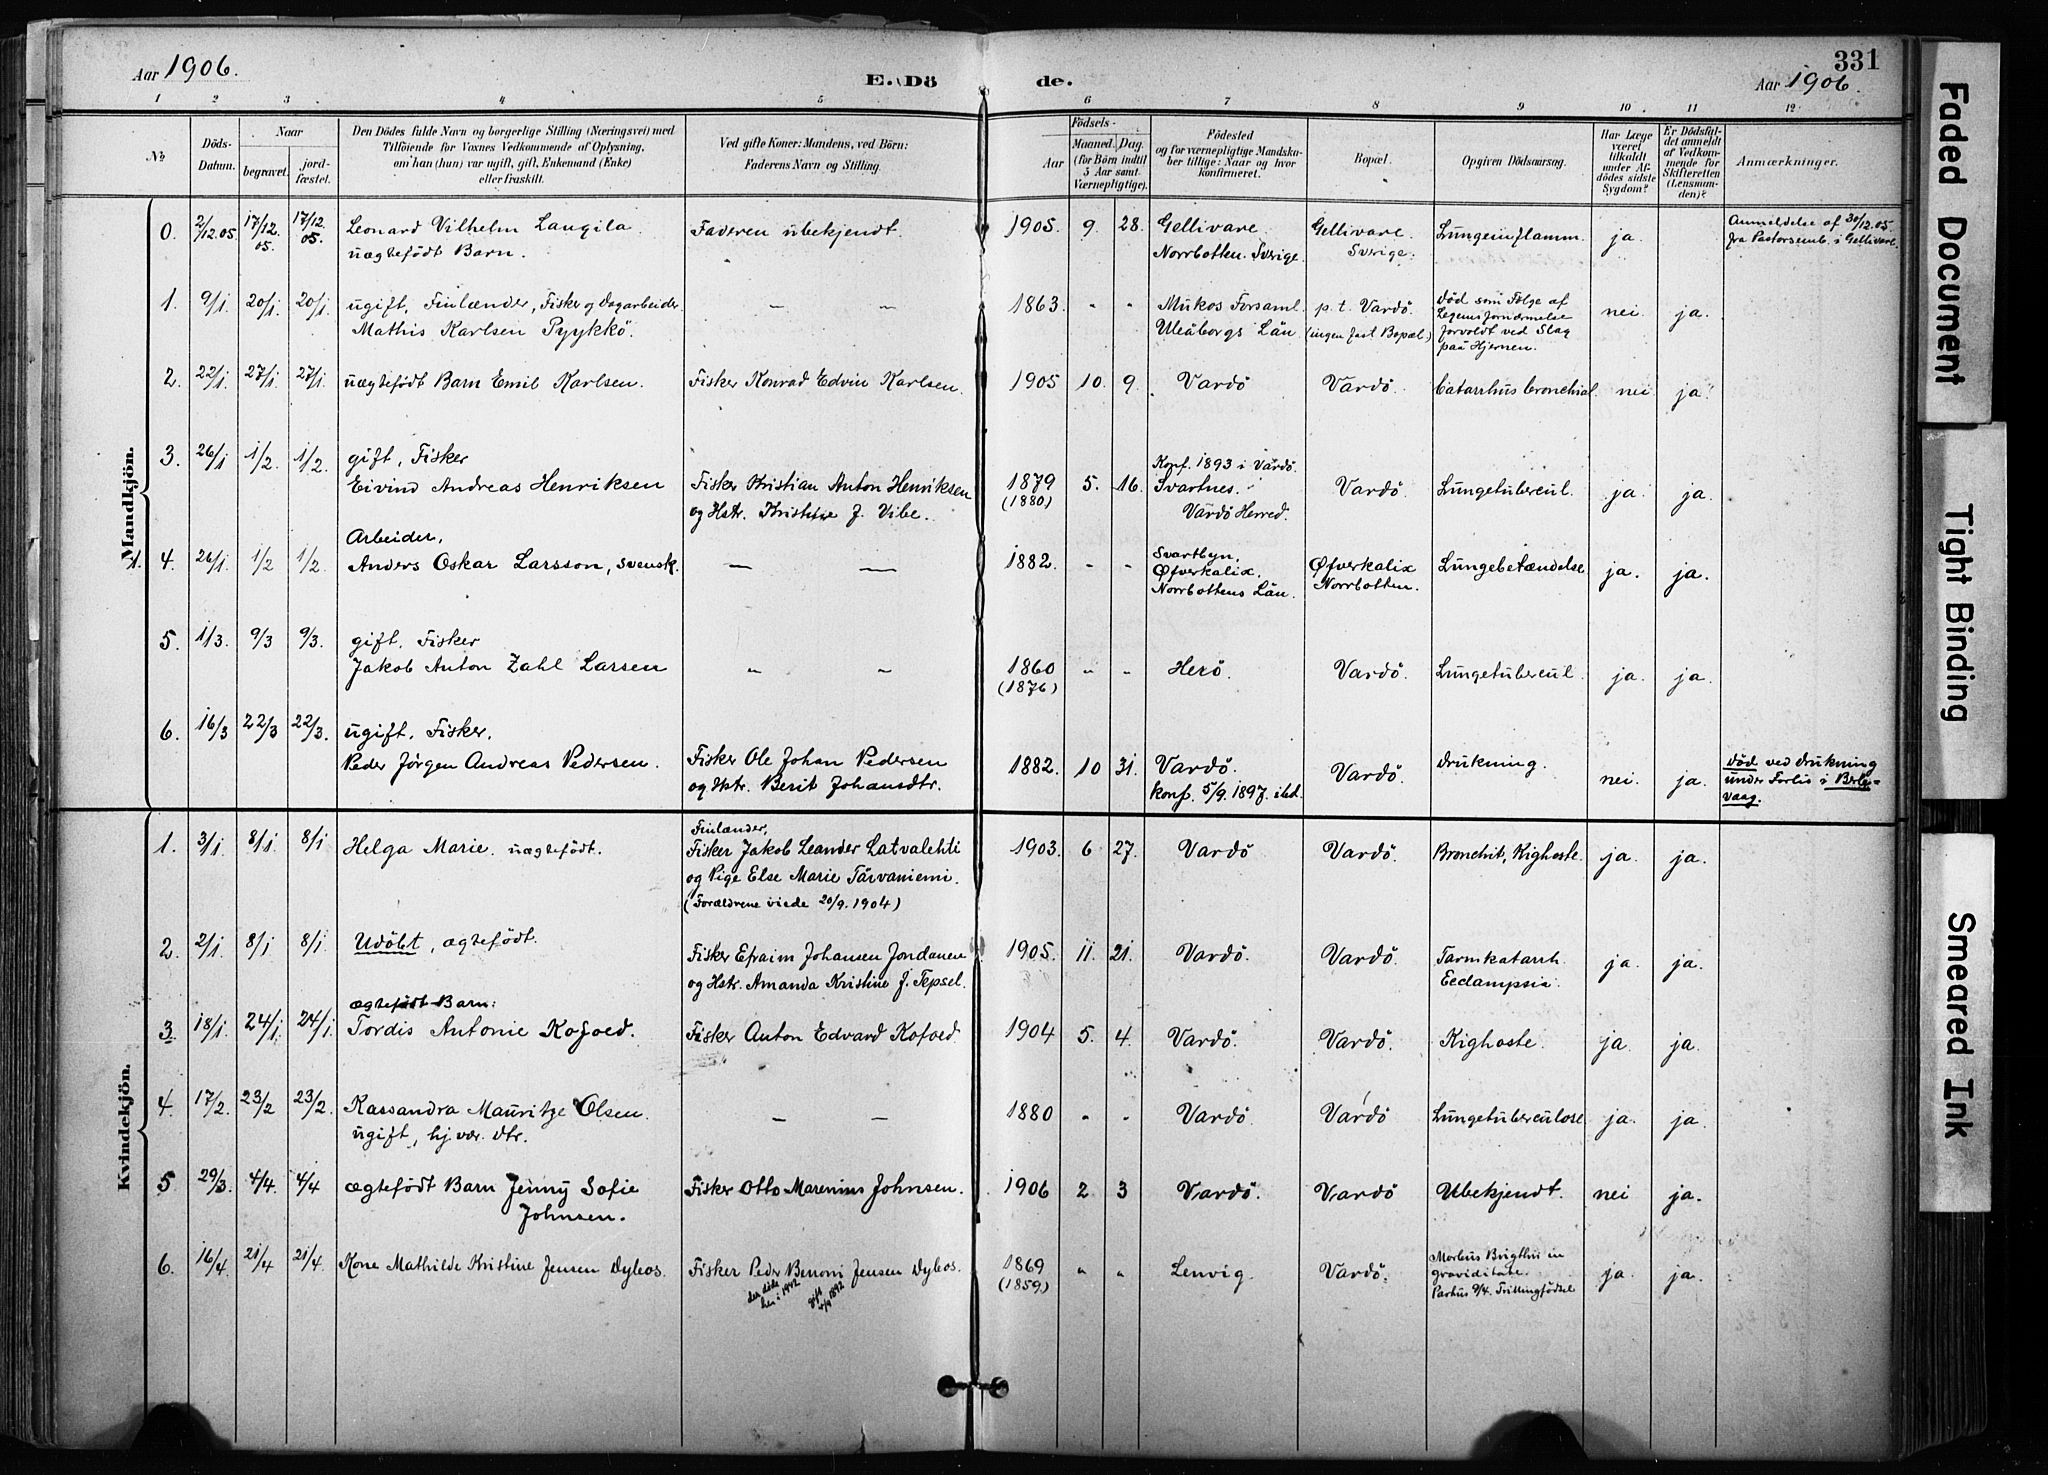 Aar 1906.
E. Dö de.
331
Aar 1906.
1 2 3 4 5 6 7 8 9 10 11 12
No
Döds-Datum.
Naar
begravet.
jord-fæstet.
Den Dödes fulde Navn og borgerlige Stilling (Næringsvei) med
Tilföiende for Voxnes Vedkommende af Oplysning,
om han (hun) var ugift, gift, Enkemand (Enke)
eller fraskilt.
Ved gifte Koner: Mandens, ved Börn:
Faderens Navn og Stilling.
Födsels-
Aar
Maaned. Dag.
(for Börn indtil
5 Aar samt
Værnepligtige).
Födested
og for værnepligtige Mandska-
ber tillige: Naar og hvor
konfirmeret.
Bopæl.
Opgiven Dödsaarsag.
Har Læge
været
tilkaldt
under Af-
dödes sidste
Sygdom?
Er Dödsfal-
det anmeldt
af Vedkom-
mende for
Skifteretten
(Lensman-
den)?
Anmærkninger.
Mandkjön.
0. 2/12.05 17/12.05. 17/12.05. Leonard Vilhelm Laugila Faderen ubekjendt. 1905 9. 28. Gellivare Gellivare. Lungeinflamm. ja. Anmeldelse af 30/12.05.
uægtefödt Barn. Norrbotten. Sverige. Sverige. fra Pastorsemb. i Gellivare
1. 9/1 20/1. 20/1 ugift, Finlænder, Fisker og dagarbeider — — 1863. " " Mukos Forsaml. p.t. Vardö. död som Fölge af nei. ja.
Mathis Karlsen Pyykkö. Uleåborgs Län. (ingen fast Bopæl.) Legemsfornærmelse
forvoldt ved Slag
paa Hjernen.
2. 22/1. 27/1 27/1. uægtefödt Barn Emil Karlsen. Fisker Konrad Edvin Karlsen. 1905 10. 9. Vardö Vardö. Catarrhus bronchial. nei ja.
3. 26/1 1/2. 1/2 gift, Fisker Konf. 1893 i Vardö.
Eivind Andreas Henriksen Fisker Kristian Anton Henriksen 1879 5. 16. Svartnes. Vardö. Lungetubercul. ja. ja.
og Hstr. Kristine J. Vibe. (1880) Vardö Herred.
Arbeider,
1. 4. 26/1 1/2 1/2 Anders Oskar Larsson, svensk. — — 1882. " " Svartbyn, Øfverkalix Lungebetændelse ja. ja.
Øfverkalix. Norrbotten.
Norrbottens Län.
5. 1/3. 9/3 9/3. gift, Fisker
Jakob Anton Zahl Larsen " " 1860 " " Herö. Vardö. Lungetubercul. ja. ja.
(1876)
6. 16/3 22/3 22/3. ugift, Fisker,
Peder Jörgen Andreas Pedersen. Fisker Ole Johan Pedersen 1882. 10 31. Vardö. Vardö. drukning. nei. ja. död ved drukning
og Hstr. Berit Johansdtr. konf. 5/9. 1897. ibd. under Forlis i Berle-
vaag.
Kvindekjön.
Finlænder,
1. 3/1 8/1 8/1 Helga Marie. uægtefödt. Fisker Jakob Leander Latvalehti 1903. 6 27. Vardö Vardö. Bronchit, Kighoste. ja. ja.
og Pige Else Marie Tärvaniemi.
(Forældrene viede 20/9. 1904)
2. 2/1 8/1 8/1 Udöbt, ægtefödt. Fisker Efraim Johansen Jondanen 1905. 11. 21. Vardö. Vardö. Tarmkatarrh. ja. ja.
og Hstr. Amanda Kristine J. Tepsel. Eclampsia.
ægtefödt Barn:
3. 18/1. 24/1 24/1 Tordis Antonie Kofoed. Fisker Anton Edvard Kofoed. 1904 5. 4. Vardö. Vardö. Kighoste. ja. ja.
4. 17/2. 23/2 23/2. Kassandra Mauritze Olsen. — — 1880 " " Vardö. Vardö Lungetuberculose ja. ja.
ugift, hj.vær. dtr.
5 29/3. 4/4. 4/4 ægtefödt Barn Jenny Sofie Fisker Otto Marenius Johnsen. 1906 2 3 Vardö. Vardö Ubekjendt. nei ja.
Johnsen.
6. 16/4. 21/4 21/4. Kone Mathilde Kristine Jensen Dybos. Fisker Peder Benoni Jensen Dybos. 1869 " " Lenvig. Vardö. Morbus Brigthii in ja. ja.
(1859) graviditate.
Partus 9/4. Trillingfödsel
der döde her i 1942
gift 4/9 1892
Faded Document
Tight Binding
Smeared Ink